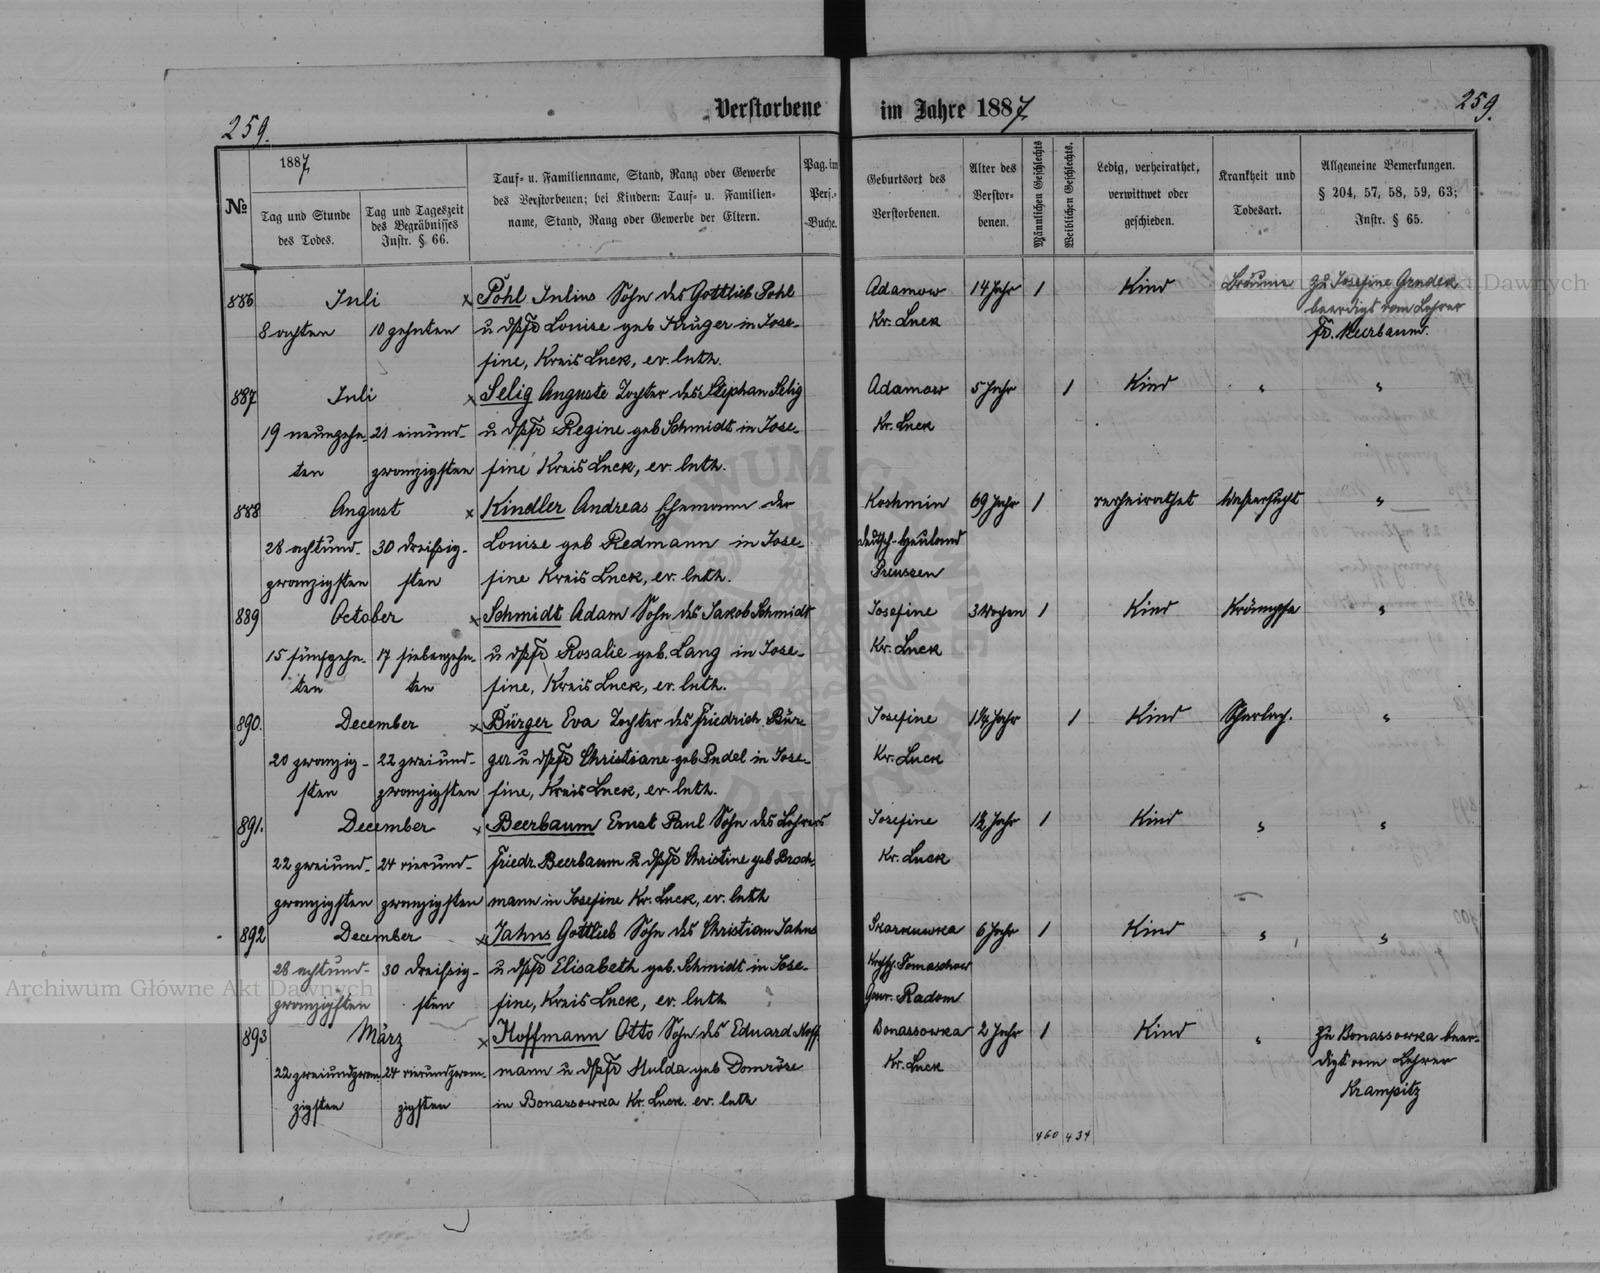 Verstorbene im Jahre 1887
259.
259.
№
1887
Tag und Stunde
des Todes.
Tag und Tageszeit
des Begräbnisses
Instr. § 66.
Tauf- u. Familienname, Stand, Rang oder Gewerbe
des Verstorbenen; bei Kindern: Tauf- u. Familien-
name, Stand, Rang oder Gewerbe der Eltern.
Pag. im
Pers.-
Buche.
Geburtsort des
Verstorbenen.
Alter des
Verstor-
benen.
Männlichen Geschlechts
Weiblichen Geschlechts.
Ledig, verheirathet,
verwittwet oder
geschieden.
Krankheit und
Todesart.
Allgemeine Bemerkungen.
§ 204, 57, 58, 59, 63;
Instr. § 65.
886 Juli x Pohl Julius Sohn des Gottlieb Pohl Adamow 14 Jahr 1 Kind Bräune Zu Josefine
8 achten 10 zehnten u Louise geb Krüger in Jose- Kr. Luck beerdigt vom Lehrer
fine, Kreis Luck, ev. luth. Fr. Beerbaum.
887 Juli x Selig Auguste Tochter des Stephan Selig Adamow 5 Jahr 1 Kind " "
19 neunzehn- 21 einund- u Regine geb Schmidt in Jose- Kr. Luck
ten zwanzigsten fine Kreis Luck, ev. luth.
888 August x Kindler Andreas Ehemann der Koshmin 69 Jahr 1 verheirathet Wassersucht "
28 achtund- 30 dreißig- Louise geb Redmann in Jose- deutsch-
zwanzigsten sten fine Kreis Luck, ev. luth. Preussen
889 October x Schmidt Adam Sohn des Jakob Schmidt Josefine 3 Wochen 1 Kind Krämpfe "
15 fünfzehn- 17 siebenzehn- u Rosalie geb. Lang in Jose- Kr. Luck
ten ten fine, Kreis Luck, ev. luth.
890. December x Bürger Eva Tochter des Friedrich Bür- Josefine Jahr 1 Kind Scharlach. "
20 zwanzig- 22 zweiund- ger u Christiane geb Pudel in Jose- Kr. Luck
sten zwanzigsten fine, Kreis Luck, ev. luth.
891. December x Beerbaum Ernst Paul Sohn des Lehrers Josefine Jahr 1 Kind " "
22 zweiund- 24 vierund- Friedr. Beerbaum u Christine geb Broch- Kr. Luck
zwanzigsten zwanzigsten mann in Josefine Kr. Luck, ev. luth
892 December x Jahns Gottlieb Sohn des Christian Jahns Skarkuwka 6 Jahr 1 Kind " "
28 achtund- 30 dreißig- u Elisabeth geb. Schmidt in Jose- Tomaschow
zwanzigsten sten fine, Kreis Luck, ev. luth Gouv. Radom
893 März x Hoffmann Otto Sohn des Eduard Hoff- Bonassowka 2 Jahr 1 Kind " Zu Bonassowka beer-
22 zweiundzwan- 24 vierundzwan- mann u Hulda geb Domröse Kr. Luck digt vom Lehrer
zigsten zigsten in Bonassowka Kr. Luck. ev. luth Krampitz
460 434
Archiwum Główne Akt Dawnych
Akt Dawnych